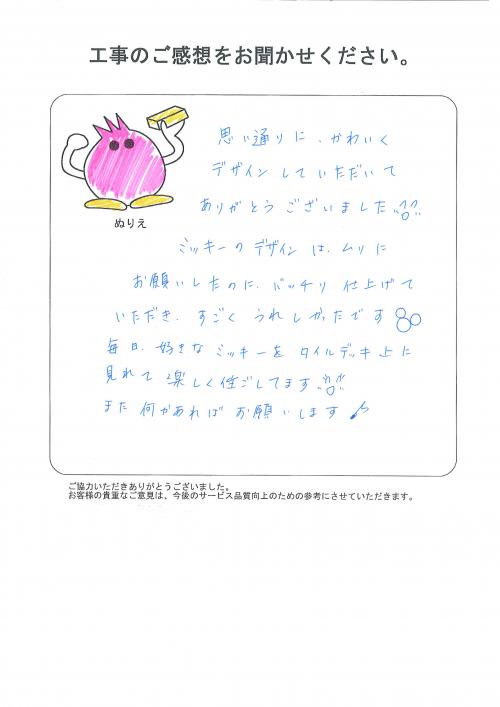 工事のご感想をお聞かせください。
ぬりえ
思い通りに、かわいく
デザインしていただいて
ありがとうございました
ミッキーのデザインは、ムリに
お願いしたのに、バッチリ仕上げて
いただき、すごくうれしかったです
毎日、好きなミッキーをタイルデッキ上に
見れて楽しく過ごしてます
また何かあればお願いします♪
ご協力いただきありがとうございました。
お客様の貴重なご意見は、今後のサービス品質向上のための参考にさせていただきます。